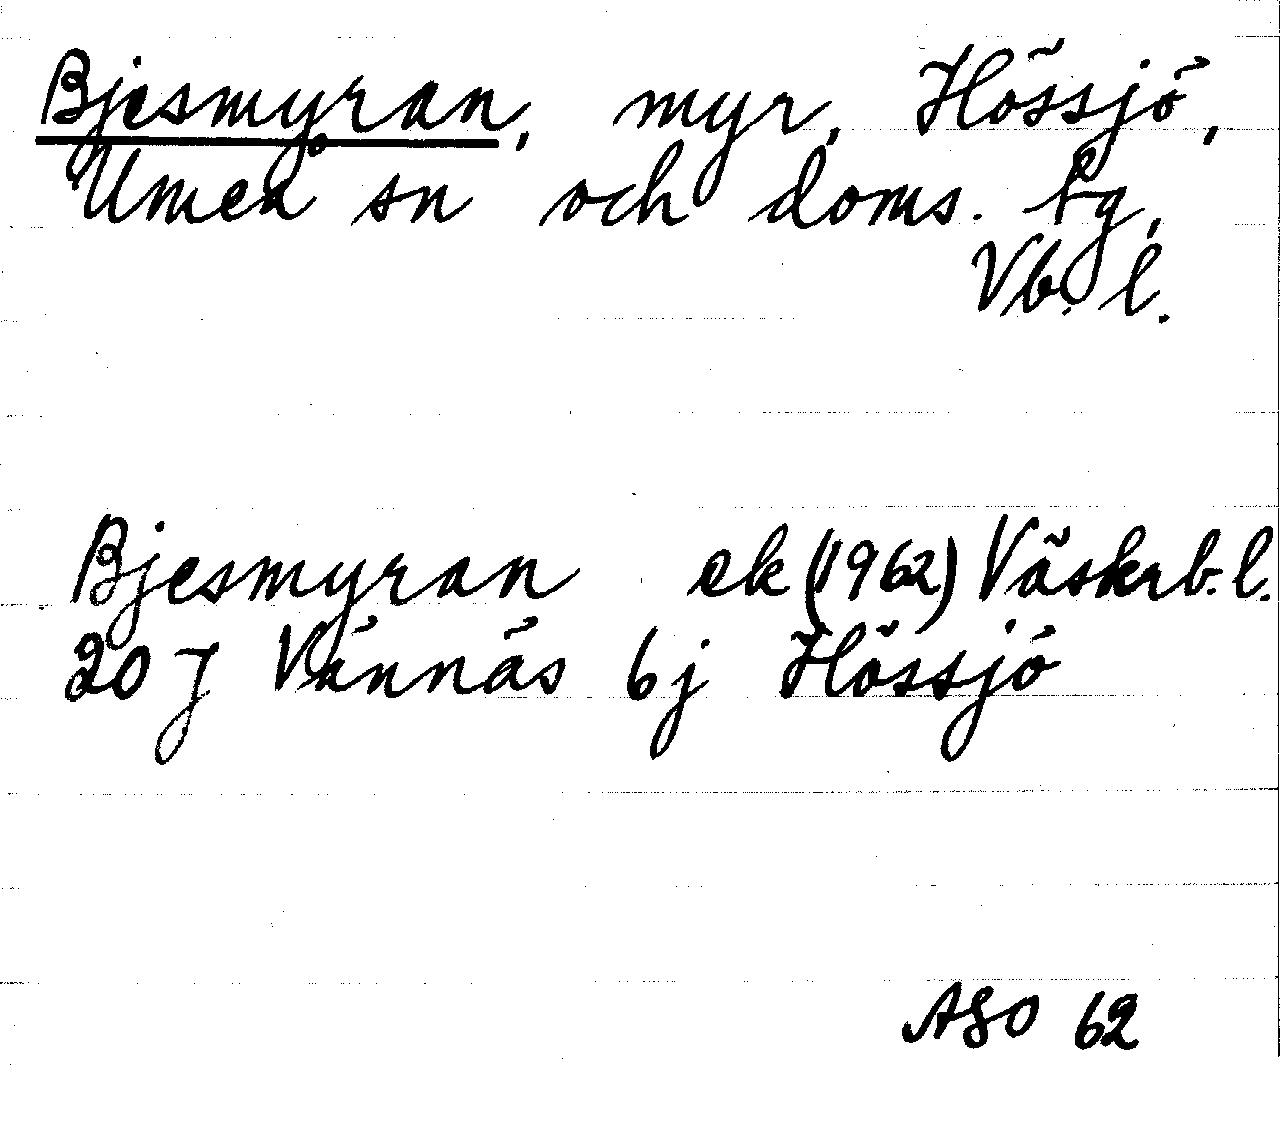 Bjesmyran, myr, Hössjö,
Umeå sn och doms. tg,
Vb. l.
Bjesmyran ek (1962) Väskrb. l.
20 J Vännäs 6j Hössjö
ASO 62